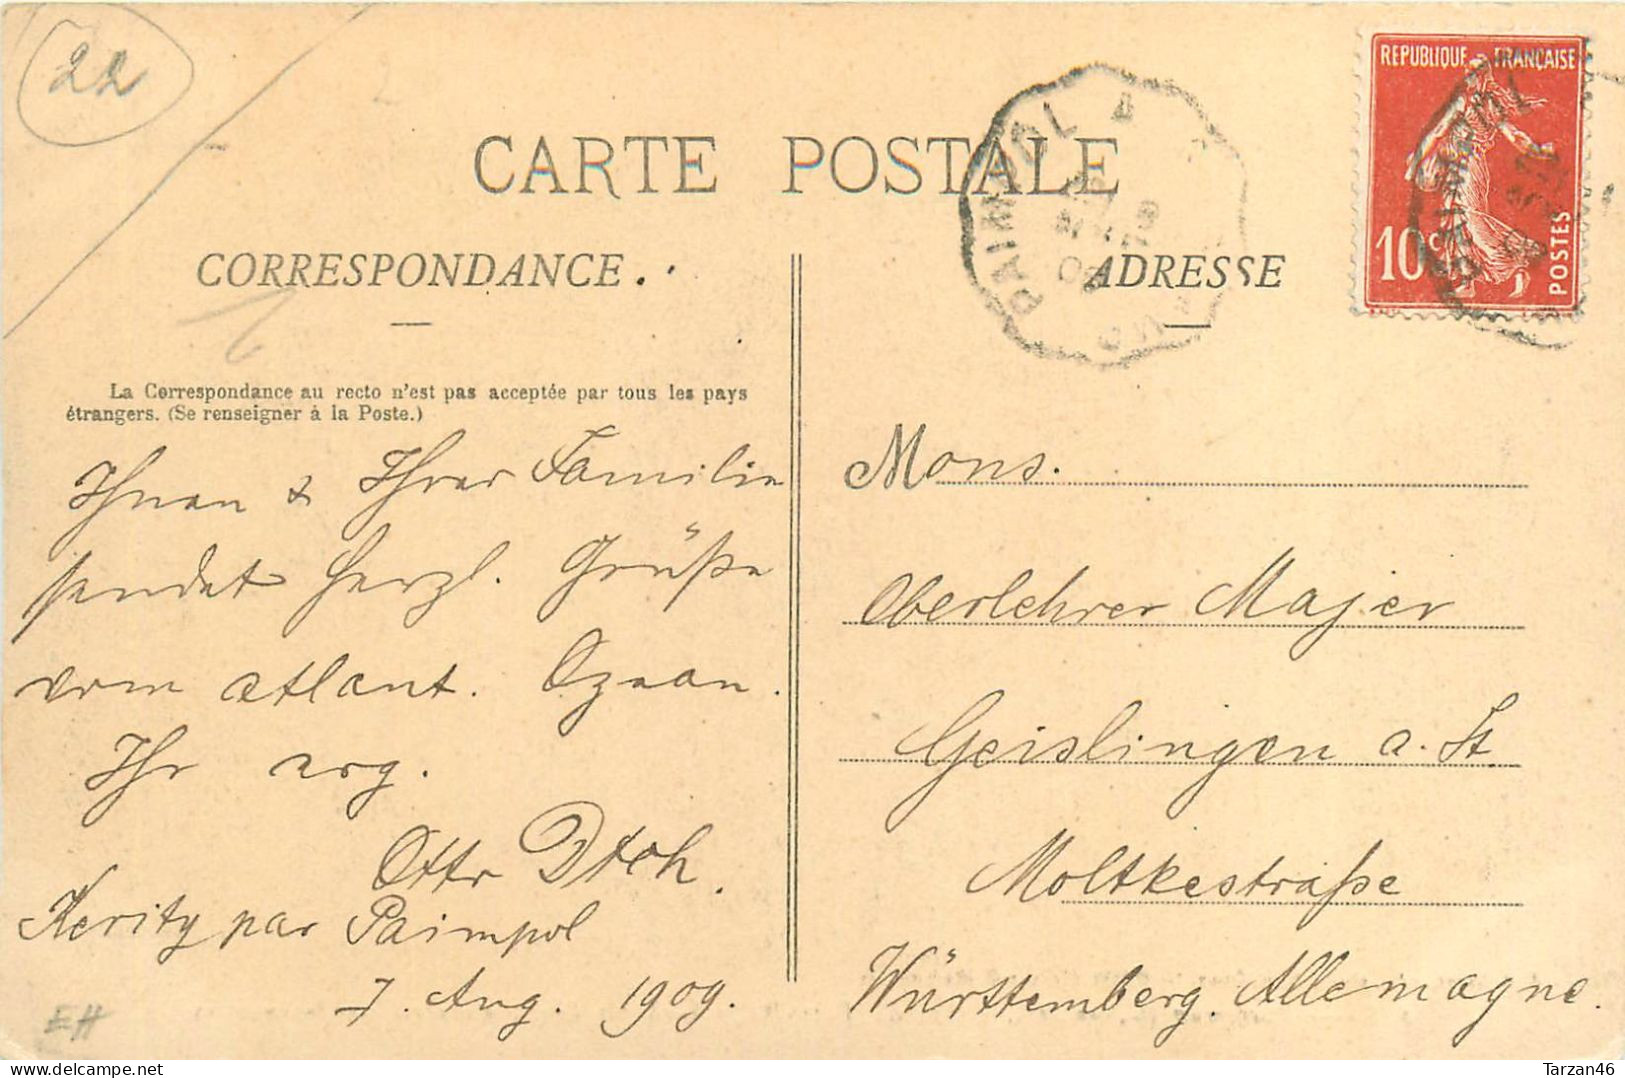 22
REPUBLIQUE FRANÇAISE
10 c
POSTES
PAIMPOL A
CARTE POSTALE
CORRESPONDANCE.
ADRESSE
La Correspondance au recto n'est pas acceptée par tous les pays
étrangers. (Se renseigner à la Poste.)
Ihnen & Ihrer Familie
sendet herzl. Grüße
vom atlant. Ozean.
Ihr erg.
Otto
Kerity par Paimpol
7. Aug. 1909.
Mons.
Oberlehrer Majer
Geislingen a. St.
Moltkestraße
Württemberg. Allemagne.
EH
Tarzan46